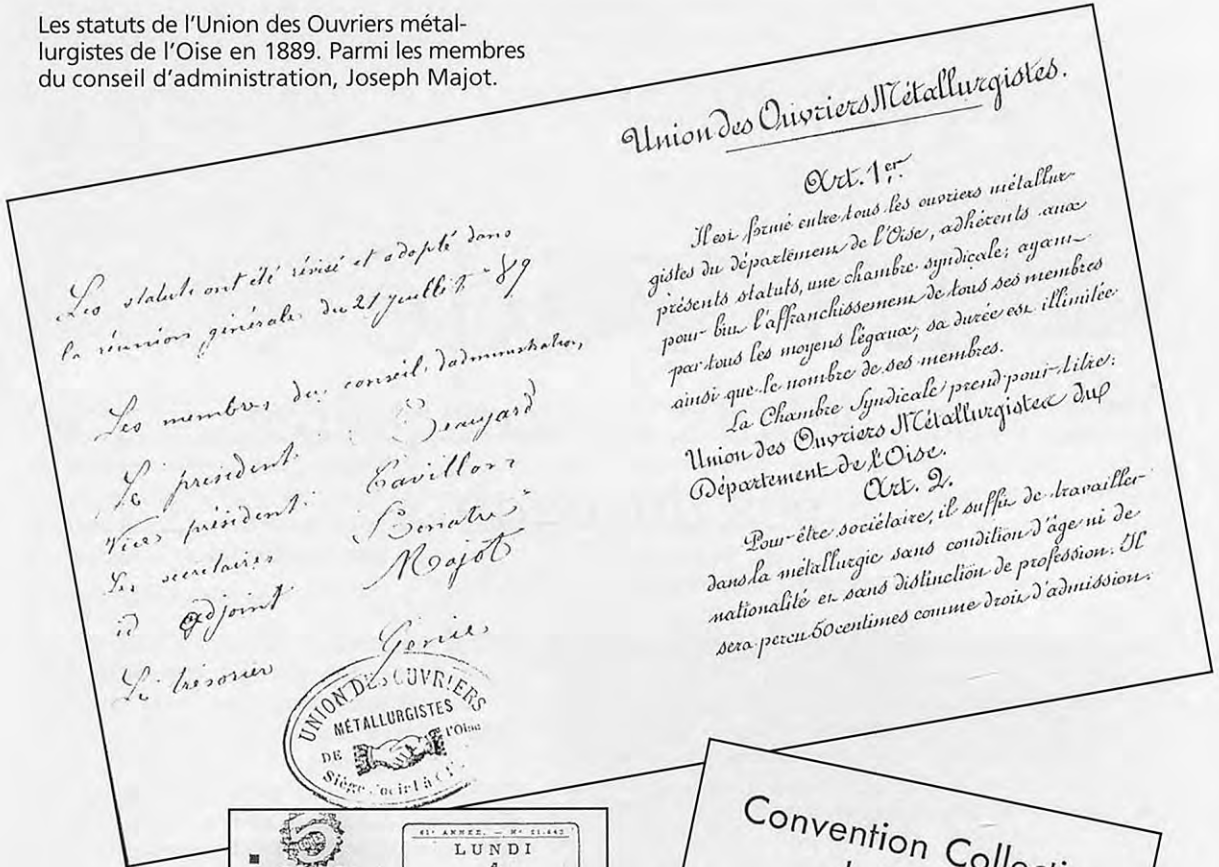 Les statuts de l'Union des Ouvriers métal-
lurgistes de l'Oise en 1889. Parmi les membres
du conseil d'administration, Joseph Majot.
Les statuts ont été révisé et adopté dans
la réunion générale du 21 juillet 89
Les membres du conseil d'administration,
Le président Beaujard
Vice président Cavillon
Les secrétaires
id adjoint Majot
Le trésorier
UNION DES OUVRIERS
MÉTALLURGISTES
DE l'Oise
Siège Social à
Union des Ouvriers Métallurgistes.
Art. 1er
Il est formé entre tous les ouvriers métallur-
gistes du département de l'Oise, adhérents aux
présents statuts, une chambre syndicale; ayant
pour but l'affranchissement de tous ses membres
par tous les moyens légaux; sa durée est illimitée
ainsi que le nombre de ses membres.
La Chambre Syndicale prend pour titre:
Union des Ouvriers Métallurgistes du
Département de l'Oise.
Art. 2.
Pour être sociétaire, il suffit de travailler
dans la métallurgie sans condition d'âge ni de
nationalité et sans distinction de profession. Il
sera perçu 50 centimes comme droit d'admission.
61e ANNEE. — No 21.442
LUNDI
Convention Collecti